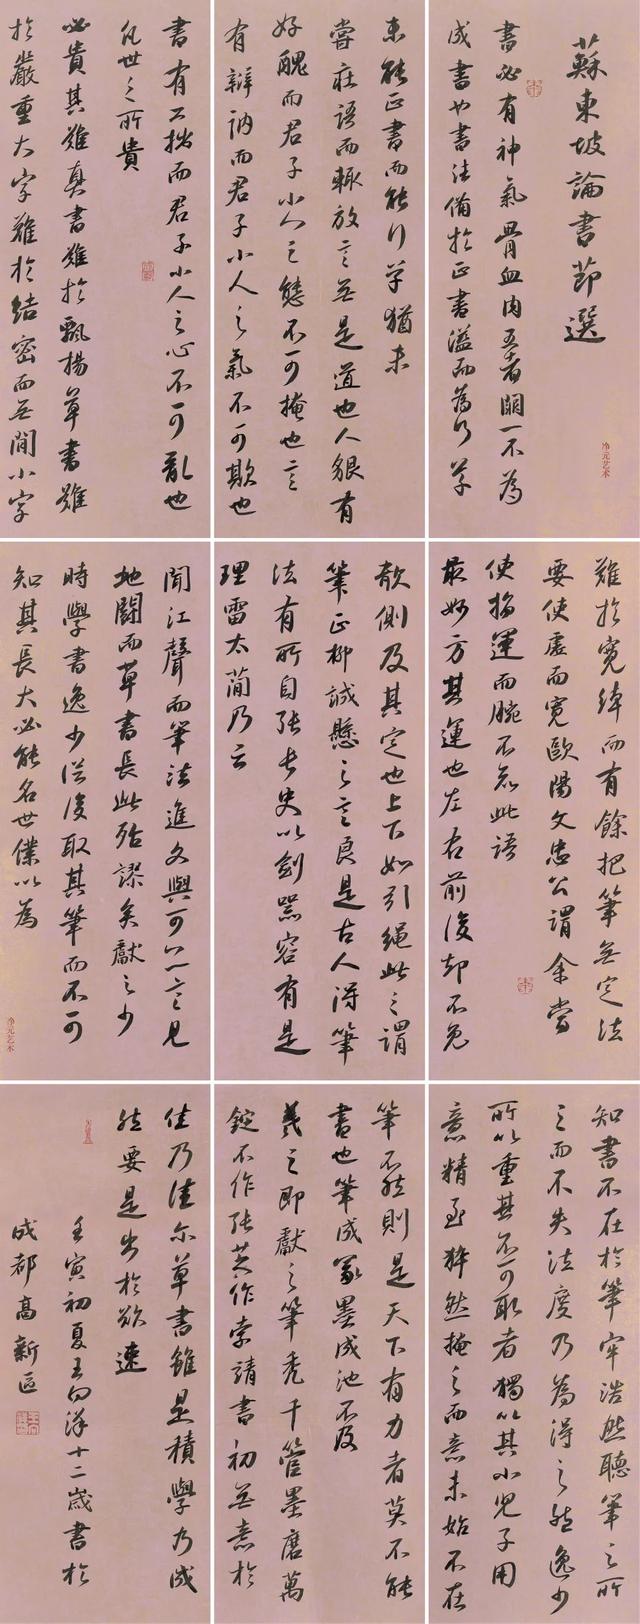 蘇東坡論書節選
書必有神氣骨血肉五者闕一不為
成書也書法備於正書溢而為行草
未能正書而能行草猶未
嘗莊語而輒放言無是道也人貌有
好醜而君子小人之態不可掩也言
有辯訥而君子小人之氣不可欺也
書有工拙而君子小人之心不可亂也
凡世之所貴
必貴其難真書難於飄揚草書難
於嚴重大字難於結密而無間小字
難於寬綽而有餘把筆無定法
要使虛而寬歐陽文忠公謂余當
使指運而腕不知此語
最妙方其運也左右前後却不免
欹側及其定也上下如引繩此之謂
筆正柳誠懸之言良是古人得筆
法有所自張長史以劍器容有是
理雷太簡乃云
聞江聲而筆法進文與可亦言見
地鬪而草書長此殆謬矣獻之少
時學書逸少從後取其筆而不可
知其長大必能名世僕以為
知書不在於筆牢浩然聽筆之所
之而不失法度乃為得之然逸少
所以重其不可取者獨以其小兒子用
意精至猝然掩之而意未始不在
筆不然則是天下有力者莫不能
書也筆成冢墨成池不及
羲之即獻之筆禿千管墨磨萬
錠不作張芝作索靖書初無意於
佳乃佳尔草書雖是積學乃成
然要是出於欲速
壬寅初夏王向洋十二歲書於
成都高新區